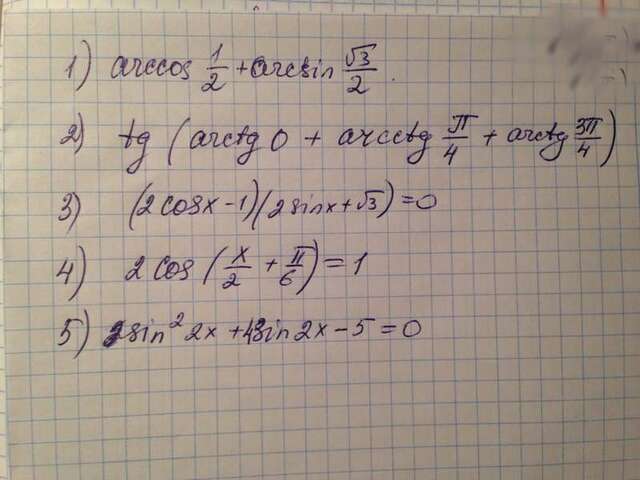 1) arccos 1/2 + arcsin √3/2.
2) tg (arctg 0 + arcctg π/4 + arctg 3π/4)
3) (2cosx - 1)(2sinx + √3) = 0
4) 2cos (x/2 + π/6) = 1
5) 2sin² 2x + 4sin2x - 5 = 0